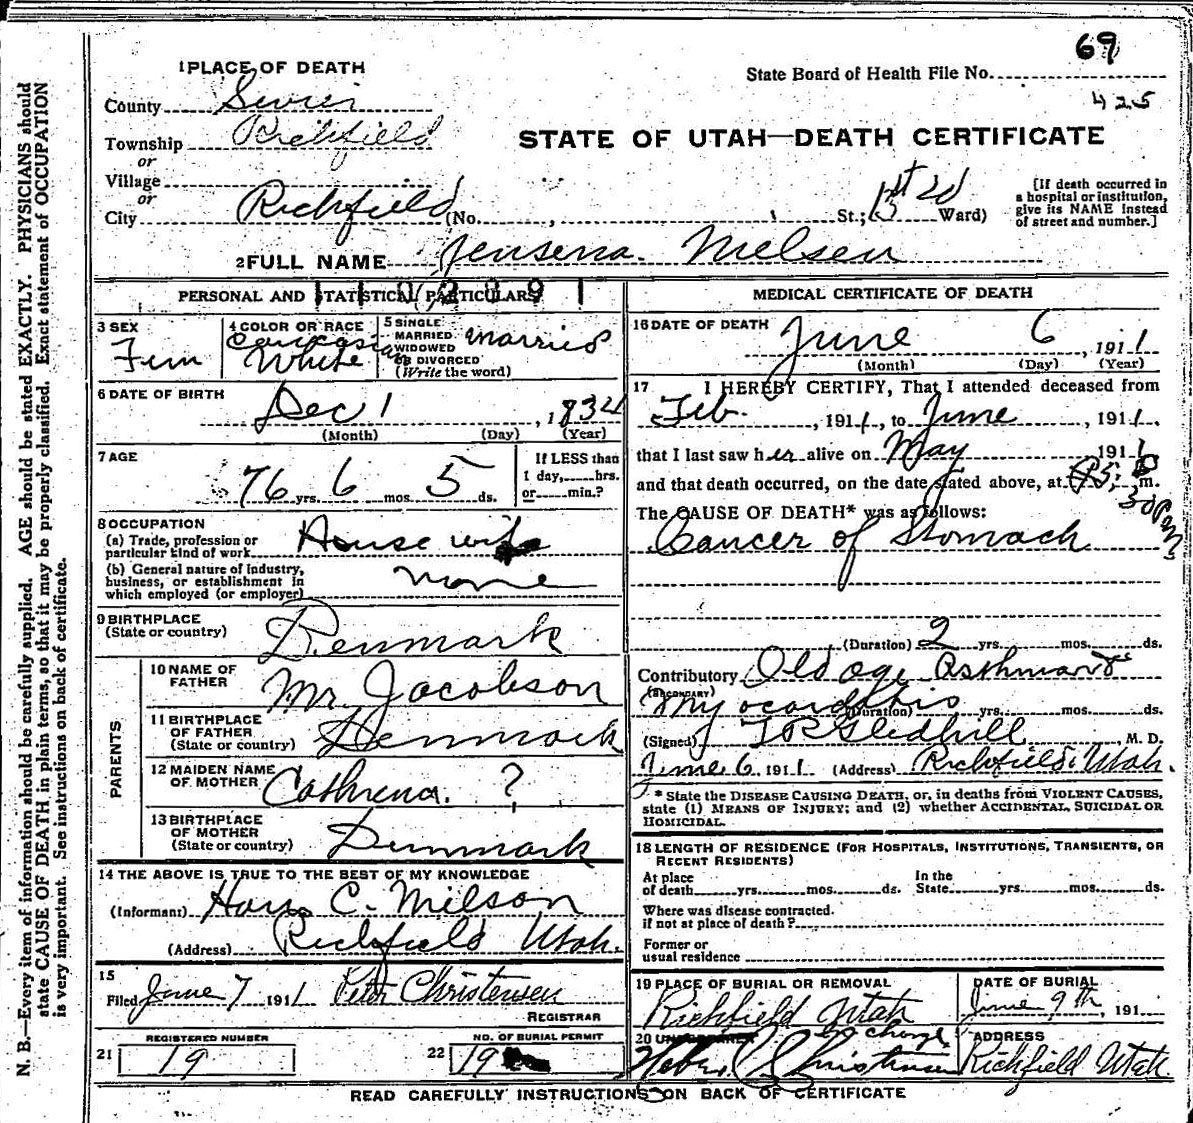 69
1 PLACE OF DEATH
State Board of Health File No.
425
County Sevier
Township Richfield
or
Village
or
City Richfield (No. , , St.; Ward)
[If death occurred in a hospital or institution, give its NAME instead of street and number.]
STATE OF UTAH—DEATH CERTIFICATE
2 FULL NAME Jensena. Nielsen
PERSONAL AND STATISTICAL PARTICULARS
3 SEX
Fem
4 COLOR OR RACE
Caucasian
White
5 SINGLE
MARRIED
WIDOWED
OR DIVORCED
(Write the word)
Married
6 DATE OF BIRTH
Dec 1 , 1834
(Month) (Day) (Year)
7 AGE
76 yrs. 6 mos. 5 ds.
If LESS than
1 day, hrs.
or min.?
8 OCCUPATION
(a) Trade, profession or
particular kind of work House wife
(b) General nature of industry,
business, or establishment in
which employed (or employer) none
9 BIRTHPLACE
(State or country) Denmark
PARENTS
10 NAME OF
FATHER Mr Jacobson
11 BIRTHPLACE
OF FATHER
(State or country) Denmark
12 MAIDEN NAME
OF MOTHER Cathrena. ?
13 BIRTHPLACE
OF MOTHER
(State or country) Denmark
14 THE ABOVE IS TRUE TO THE BEST OF MY KNOWLEDGE
(Informant) Hans C. Nilson
(Address) Richfield Utah.
15
Filed June 7 1911 Peter Christensen
REGISTRAR
REGISTERED NUMBER
21 19
NO. OF BURIAL PERMIT
22 19
MEDICAL CERTIFICATE OF DEATH
16 DATE OF DEATH
June 6 , 1911
(Month) (Day) (Year)
17 I HEREBY CERTIFY, That I attended deceased from
Feb. , 1911, to June , 1911,
that I last saw her alive on May 1911
and that death occurred, on the date stated above, at 5: m.
30 Pm
The CAUSE OF DEATH* was as follows:
Cancer of Stomach
(Duration) 2 yrs. mos. ds.
Contributory Old age Asthma &
(SECONDARY)
Myocarditis (Duration) yrs. mos. ds.
(Signed) T R Gledhill , M. D.
June 6 1911 (Address) Richfield Utah.
* State the DISEASE CAUSING DEATH, or, in deaths from VIOLENT CAUSES,
state (1) MEANS OF INJURY; and (2) whether ACCIDENTAL, SUICIDAL OR
HOMICIDAL.
18 LENGTH OF RESIDENCE (FOR HOSPITALS, INSTITUTIONS, TRANSIENTS, OR
RECENT RESIDENTS)
At place
of death yrs. mos. ds.
In the
State yrs. mos. ds.
Where was disease contracted.
if not at place of death?
Former or
usual residence
19 PLACE OF BURIAL OR REMOVAL
Richfield Utah
DATE OF BURIAL
June 9th , 191
20 in charge
Christensen
ADDRESS
Richfield Utah
READ CAREFULLY INSTRUCTIONS ON BACK OF CERTIFICATE
N. B.—Every item of information should be carefully supplied. AGE should be stated EXACTLY. PHYSICIANS should
state CAUSE OF DEATH in plain terms, so that it may be properly classified. Exact statement of OCCUPATION
is very important. See instructions on back of certificate.